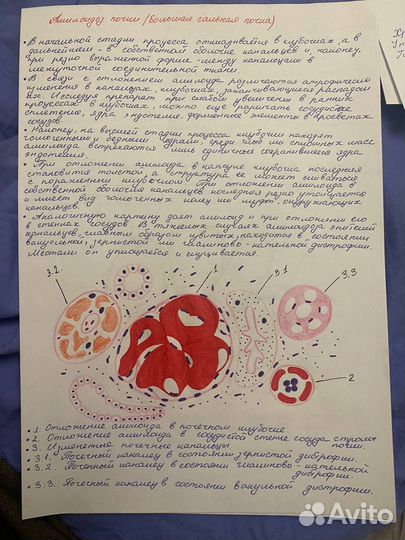 Амилоидоз почки (большая сальная почка)
• В начальной стадии процесса откладывается в клубочках, а в
дальнейшем - в собственной оболочке канальцев и, наконец,
при резко выраженной форме - между канальцами в
межуточной соединительной ткани
• В связи с отложением амилоида развиваются атрофические
изменения в канальцах, клубочках, заканчивающиеся распадом
их. Исследуя препарат при слабом увеличении в ранних
процессах в клубочках, можно ещё различить сосудистое
сплетение, ядра эндотелия, форменные элементы в просветах
сосудов.
• Наконец, на высшей стадии процесса клубочки находят
гомогенными и бедными ядрами, среди глыб или слившихся масс
амилоида встречаются лишь единично сохранившиеся ядра
эндотелия.
• При отложении амилоида в капсуле клубочка последняя
становится толстой, а структура её может сливаться
с поражённым клубочком. При отложении амилоида в
собственной оболочке канальцев последняя резко утолщается
и имеет вид гомогенных колец или муфт, окружающих
канальцев.
• Аналогичную картину даёт амилоид и при отложении его
в стенках сосудов. В тяжёлых случаях амилоидоза эпителий
канальцев, главным образом извитых, находится в состоянии
вакуольной, зернистой или гиалиново-капельной дистрофии.
Местами он уплощается и слущивается.
3.2
1
3.1
3.3
2
• 1 Отложение амилоида в почечном клубочке
• 2. Отложение амилоида в сосудистой стенке сосуда стромы
почки.
• 3. Измененные почечные канальцы
• 3.1. Почечный каналец в состоянии зернистой дистрофии.
• 3.2. Почечный каналец в состоянии гиалиново-капельной
дистрофии.
• 3.3. Почечный каналец в состоянии вакуольной дистрофии.
Avito